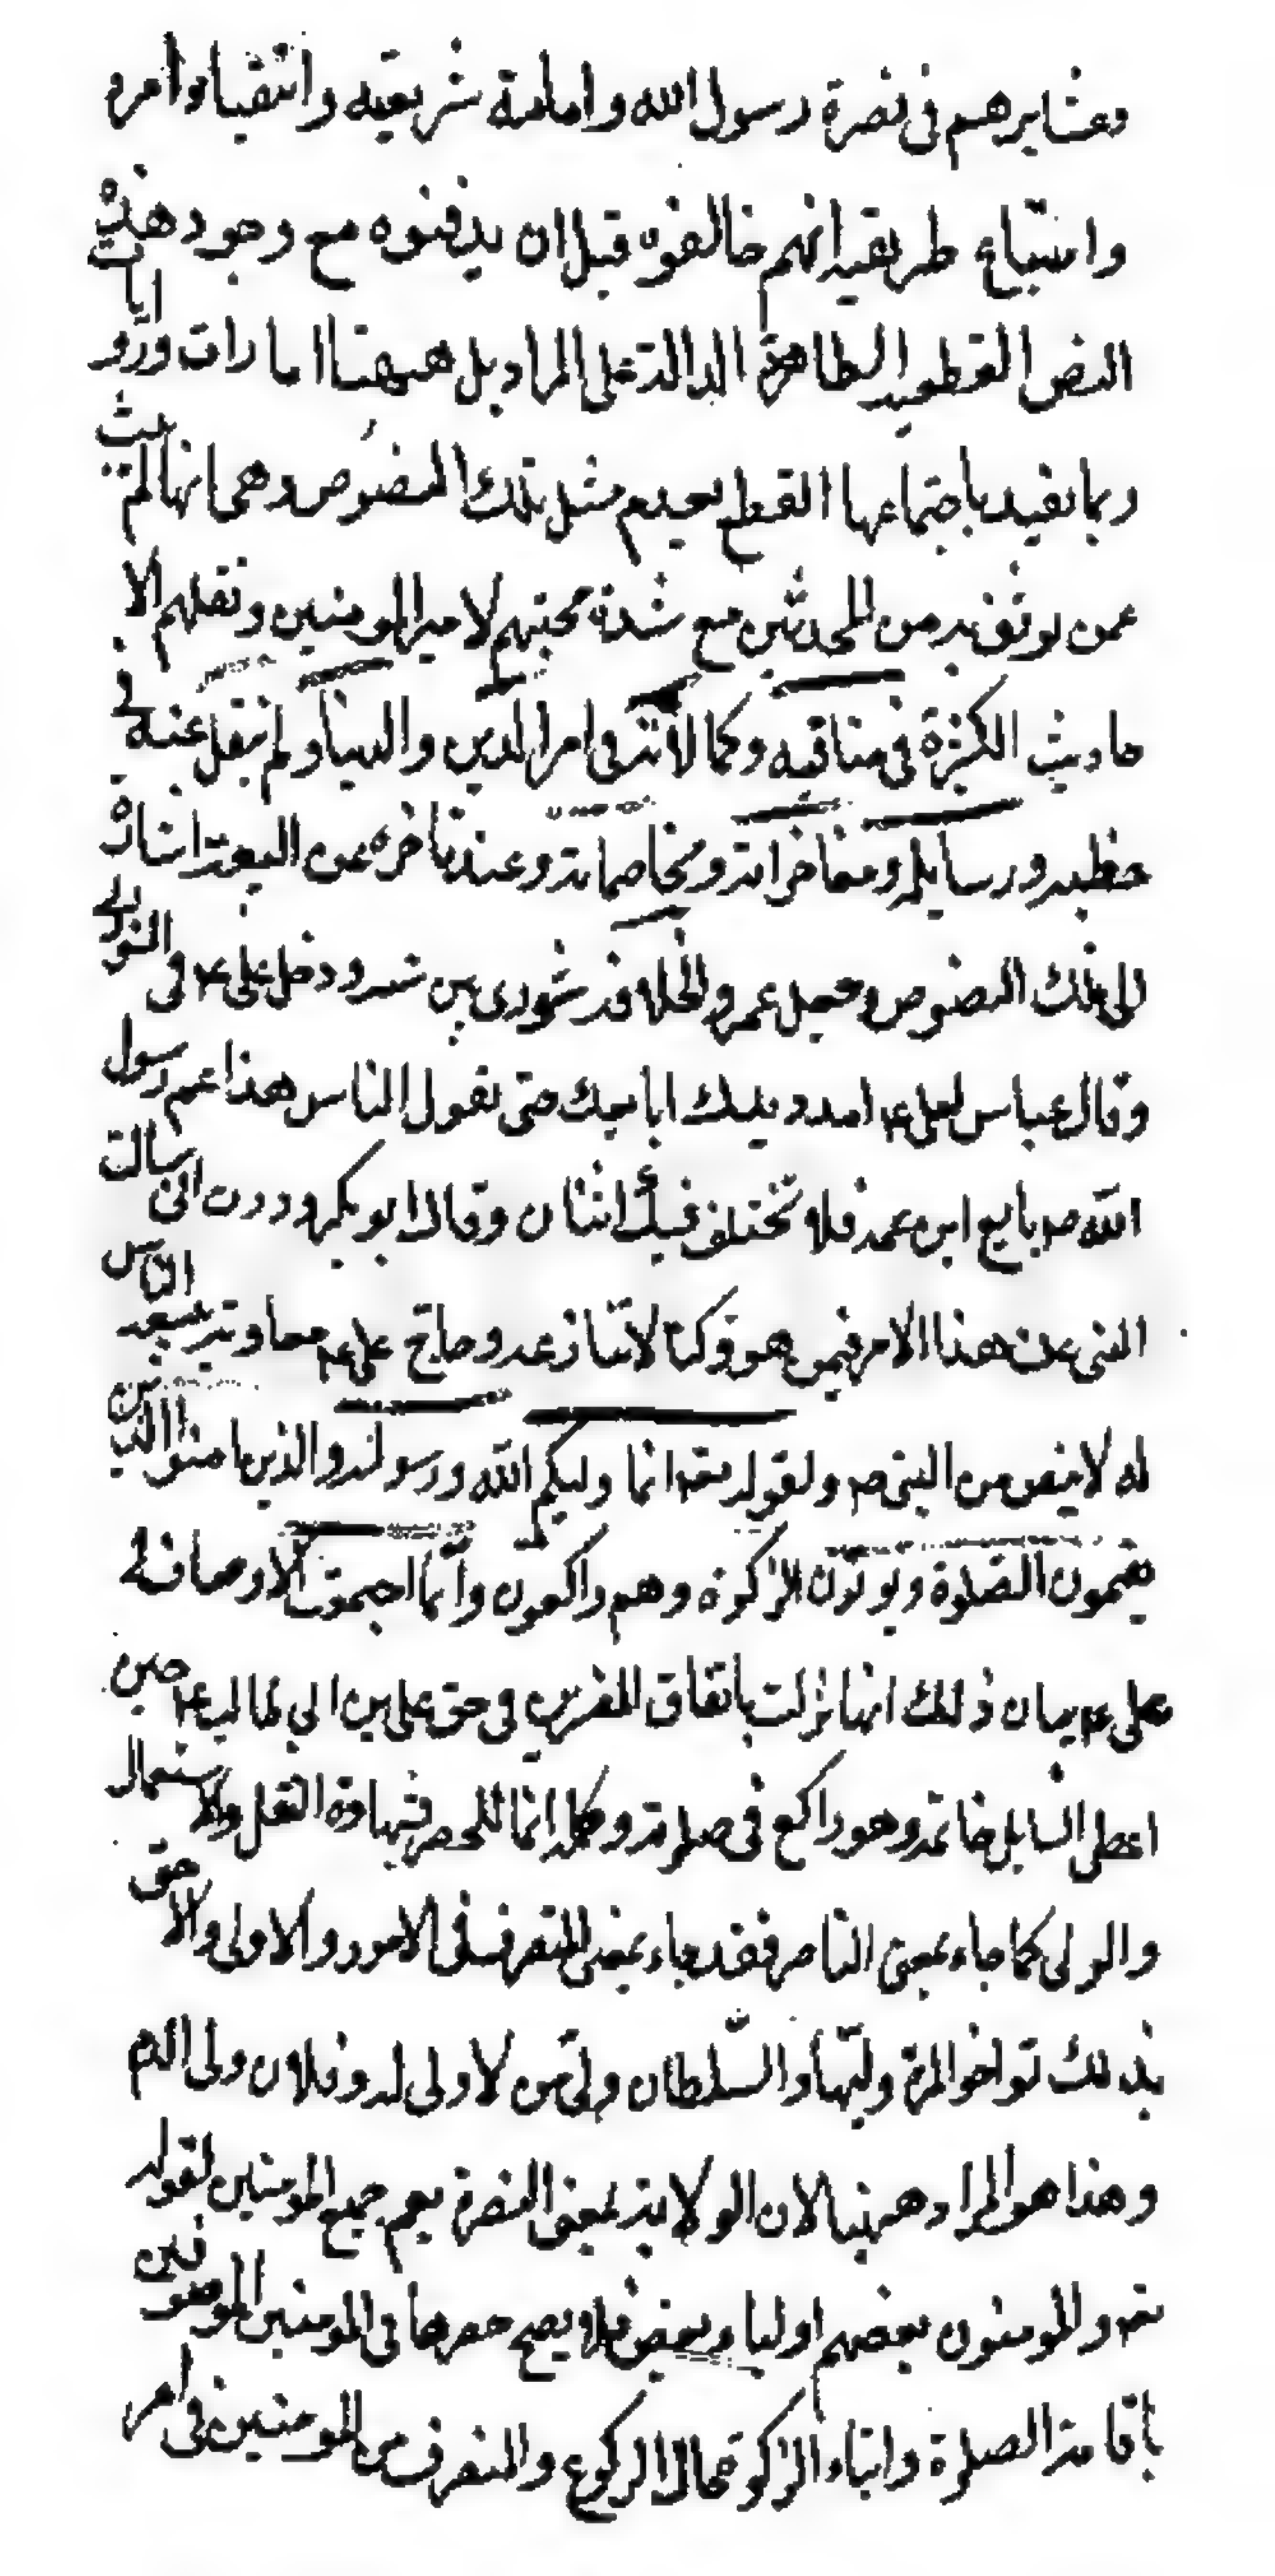 وعشايرهم في نصرة رسول الله واقامة شريعته وانقياد امره
واتباع طريقته انهم خالفوه قبل ان يدفنوه مع وجود هذه
النصوص القطعية الظاهرة الدالة على المراد بل ههنا امارات وروايات
ربما يفيد باجتماعها القطع بعدم مثل تلك النصوص وهي انها لم يثبت
عمن يوثق به من المحدثين مع شدة محبتهم لامير المومنين ونقلهم الا
حاديث الكثيرة في مناقبه وكمالاته في امر الدين والدنيا ولم ينقل عنه في
خطبه ورسايله ومفاخراته ومخاصماته وعند تاخره عن البيعة اشارة
الى تلك النصوص وجعل عمر والخلافة شورى بين ستة ودخل علي ع في الشورى
وقال عباس لعلي ع امدد يدك ابايعك حتى يقول الناس هذا عم رسول
الله ص بايع ابن عمه فلا تختلف فيك اثنان وقال ابو بكر وددت اني سالت
النبي عن هذا الامر فيمن هو وكنا لا ننازعه وحاج علي ع معاوية ببيعة الناس
له لا بنص من النبي ص ولقوله تعه انما وليكم الله ورسوله والذين امنوا الذين
يقيمون الصلوة ويوتون الزكوة وهم راكعون وانما اجتمعت الاوصاف في
علي ع بيان ذلك انها نزلت باتفاق المفسرين في حق علي بن ابي طالب ع حين
اعطى السايل خاتمه وهو راكع في صلوته وكلمة انما للحصر بشهادة النقل والاستعمال
والولي كما جاء بمعنى الناصر فقد جاء بمعنى المتصرف في الامور والاولى والاحق
بذلك تو اخو المرة وليها والسلطان ولي من لا ولي له وفلان ولي الدم
وهذا هو المراد ههنا لان الولاية بمعنى النصرة يعم جميع المومنين لقوله
تعه والمومنون بعضهم اولياء بعض فلا يصح حصرها في المومنين الموصوفين
باقامة الصلوة وايتاء الزكوة حال الركوع والمتصرف من المومنين في امر